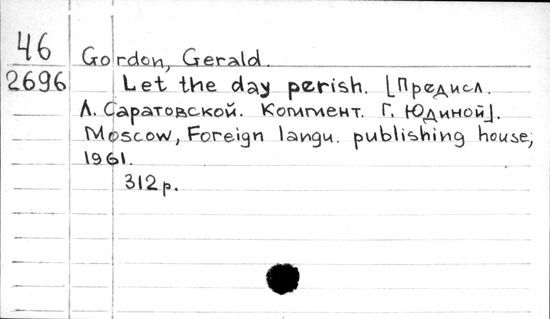 46
2696
Gordon, Gerald.
Let the day perish. [Предисл.
Л. Саратовской. Коммент. Г. Юдиной].
Moscow, Foreign langu. publishing house,
1961.
312 p.